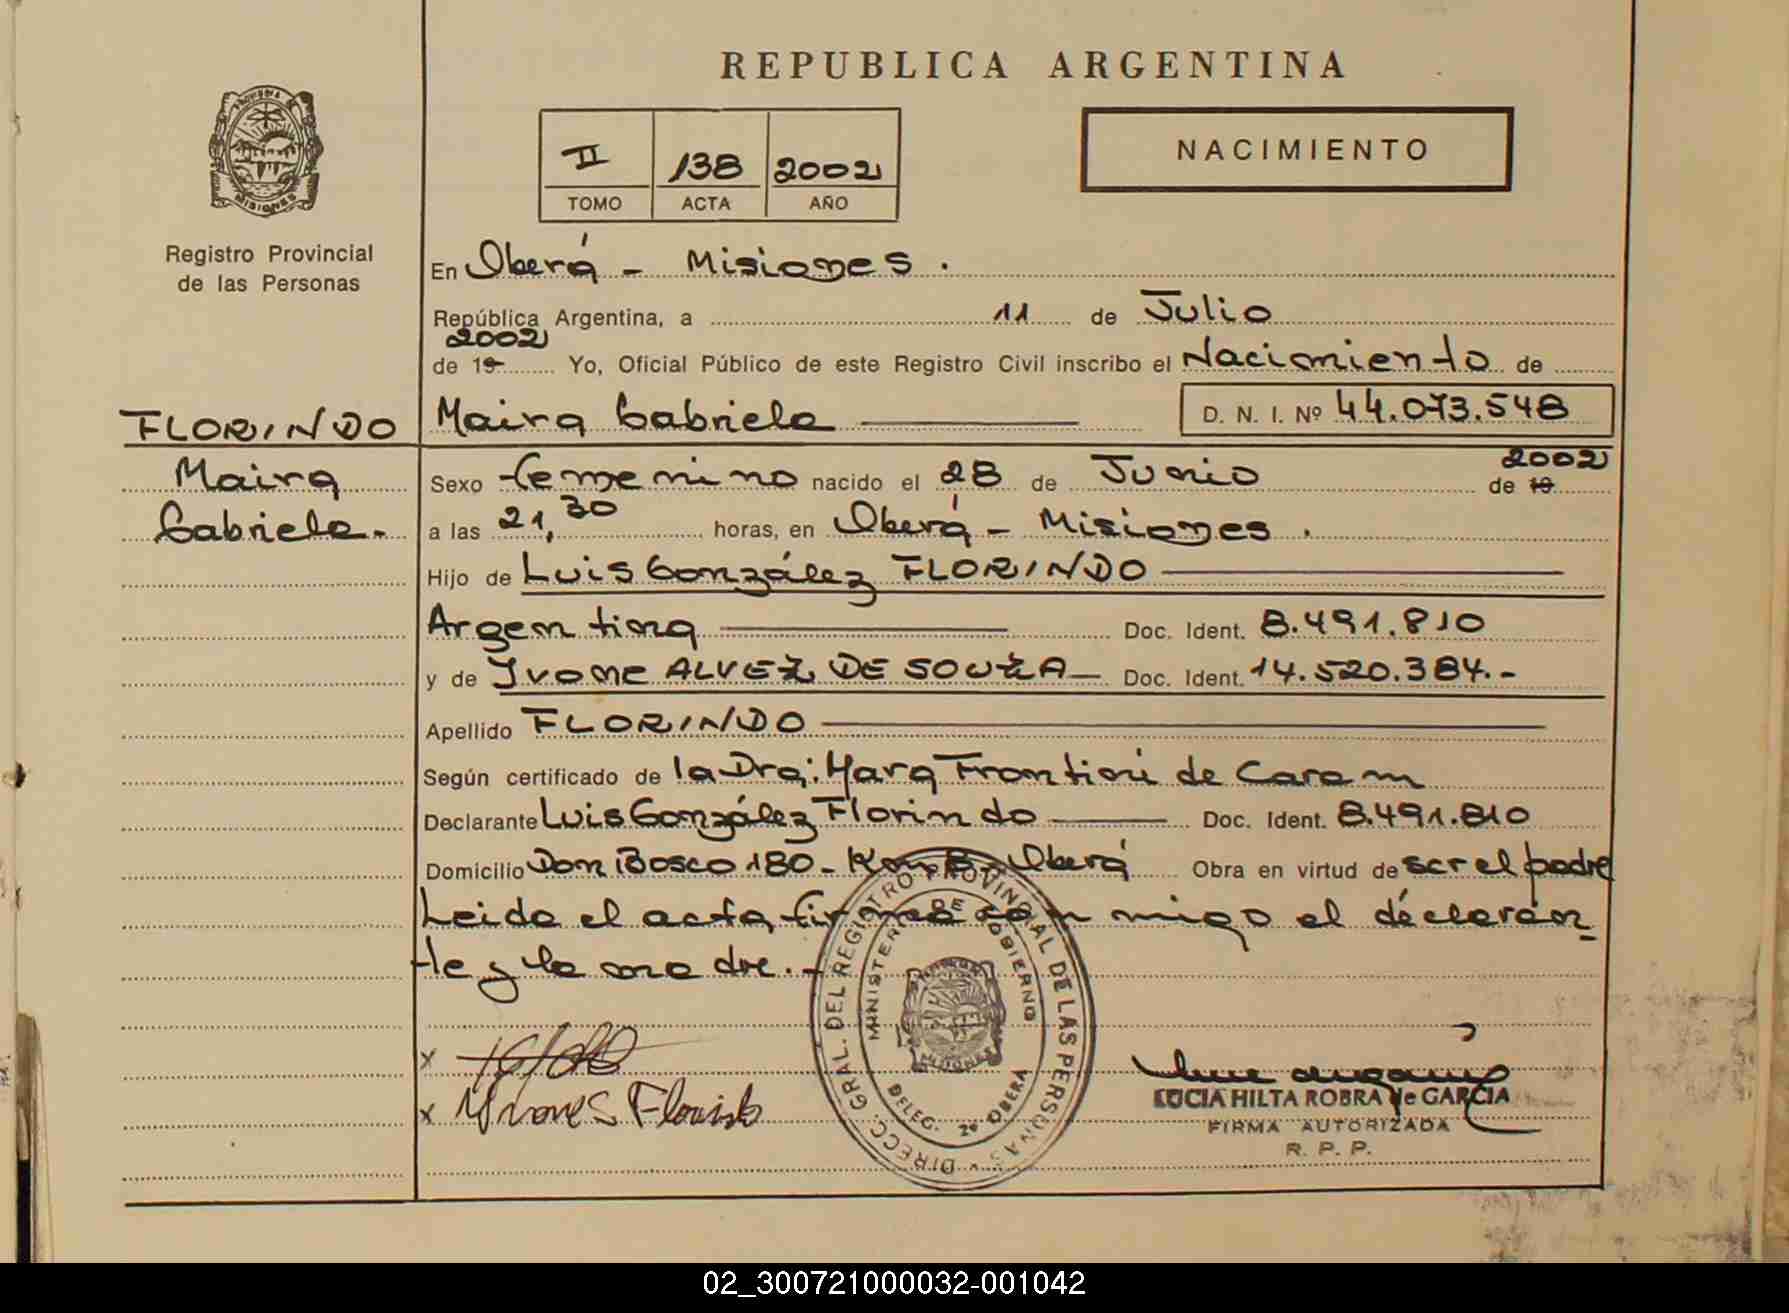 REPUBLICA ARGENTINA
PROVINCIA DE MISIONES
Registro Provincial
de las Personas
II 138 2002
TOMO ACTA AÑO
NACIMIENTO
En Oberá - Misiones.
República Argentina, a 11 de Julio
2002
de 19 Yo, Oficial Público de este Registro Civil inscribo el Nacimiento de
FLORINDO
Maira
Gabriela.-
Maira Gabriela D. N. I. Nº 44.073.548
Sexo femenino nacido el 28 de Junio de 19 2002
a las 21,30 horas, en Oberá - Misiones.
Hijo de Luis González FLORINDO
Argentina Doc. Ident. 8.491.810
y de Ivone ALVEZ DE SOUZA Doc. Ident. 14.520.384.-
Apellido FLORINDO
Según certificado de la Dra: Mara Frontini de Caram
Declarante Luis González Florindo Doc. Ident. 8.491.810
Domicilio Don Bosco 180 - Km 8 - Oberá Obra en virtud de ser el padre
Leida el acta firman con migo el declaran-
te y la madre.-
x
x Yvone S Florindo
DIRECC. GRAL. DEL REGISTRO PROVINCIAL DE LAS PERSONAS
MINISTERIO DE GOBIERNO
MISIONES
DELEG. 2º OBERA
LUCIA HILTA ROBRA de GARCIA
FIRMA AUTORIZADA
R. P. P.
02_300721000032-001042